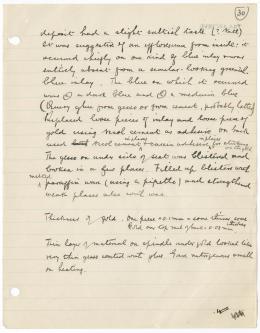 30
deposit had a slight saltish taste (? salt)
It was suggested of an efflorescence from inside: it
occurred chiefly on one kind of blue inlay & was
entirely absent from a similar-looking greenish
blue inlay. The blue on which it occurred
was ① a dark blue and ② a medium blue
(Query glue from gesso or from cement, probably latter)
Replaced loose pieces of inlay and loose piece of
gold using cement as adhesive. On back
used cement
The gesso on under side of seat was blistered and
broken in a few places. Filled up blisters with
melted
paraffin wax (using a pipette) and strengthened
weak places also with wax.
Thickness of gold. One piece = 0.1 mm = some
Gold on top
Thin layer of material on spindle under gold looked like
very thin gesso coated with glue. Gave nitrogenous smell
on heating.